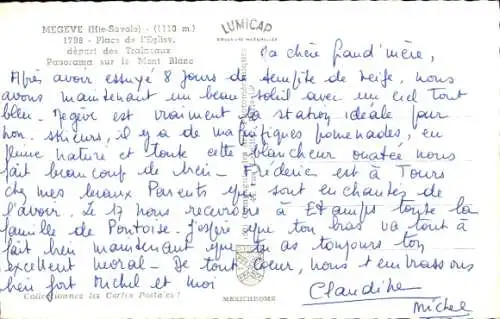 MEGEVE (Hte-Savoie) - (1110 m.)
1798 - Place de l'Eglise,
départ des Traîneaux
Panorama sur le Mont Blanc
LUMICAP
COULEURS NATURELLES
Ma chère Grand'mère,
Après avoir essuyé 8 jours de tempête de neige, nous
avons maintenant un beau soleil avec un ciel tout
bleu. Megève est vraiment la station idéale pour
non skieurs, il y a de magnifiques promenades, en
pleine nature et toute cette blancheur ouatée nous
fait beaucoup de bien - Frédéric est à Tours
chez mes beaux Parents qui sont enchantés de
l'avoir. Le 17 nous recevrons à Etampes toute la
famille de Pontoise. J'espère que ton bras va tout à
fait bien maintenant que tu as toujours ton
excellent moral - De tout coeur, nous t'embrassons
bien fort Michel et moi
Claudine
Michel
Collectionnez les Cartes Postales !
MEXICHROME